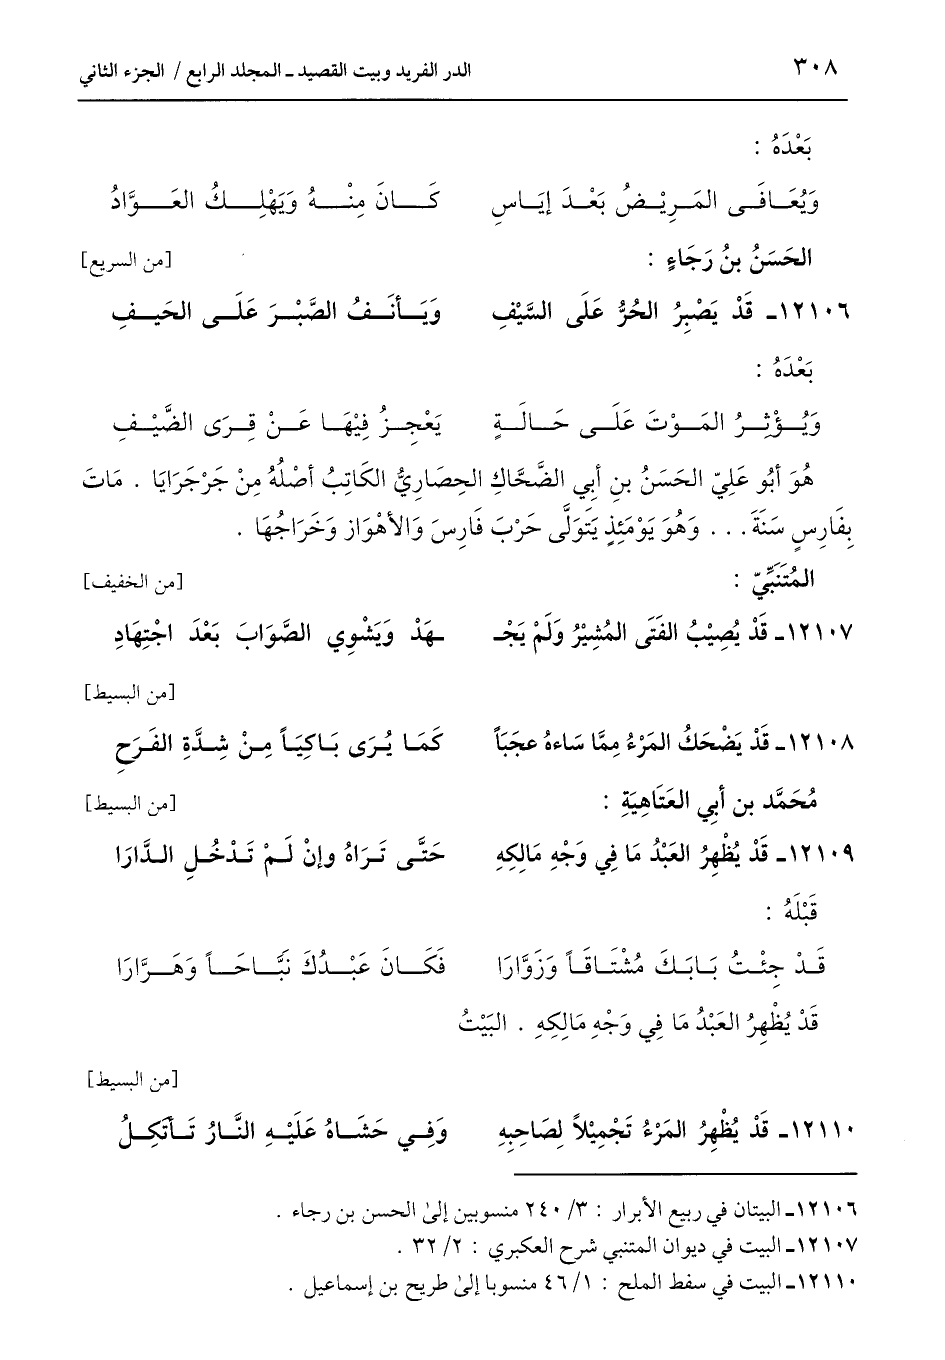 ٣٠٨ الدر الفريد وبيت القصيد ـ المجلد الرابع / الجزء الثاني
بَعْدَهُ :
وَيُعَافَى المَرِيْضُ بَعْدَ إيَاسٍ كَانَ مِنْهُ وَيَهْلِكُ العَوَّادُ
الحَسَنُ بنُ رَجَاءٍ : [من السريع]
١٢١٠٦ـ قَدْ يَصْبِرُ الحُرُّ عَلَى السَّيْفِ وَيَأنَفُ الصَّبْرَ عَلَى الحَيفِ
بَعْدَهُ :
وَيُؤْثِرُ المَوْتَ عَلَى حَالَةٍ يَعْجِزُ فِيْهَا عَنْ قِرَى الضَّيْفِ
هُوَ أَبُو عَلِيّ الحَسَنُ بنِ أبي الضَّحَّاكِ الحِصَارِيُّ الكَاتِبُ أصْلُهُ مِنْ جَرْجَرَايَا . مَاتَ
بِفَارِسٍ سَنَةَ . . . وَهُوَ يَوْمَئِذٍ يَتَوَلَّى حَرْبَ فَارِسَ وَالأهْوَازِ وَخَرَاجُهَا .
المُتَنَبِّيّ : [من الخفيف]
١٢١٠٧ـ قَدْ يُصِيْبُ الفَتَى المُشِيْرُ وَلَمْ يَجْـ ـهَدْ وَيَشْوِي الصَّوَابَ بَعْدَ اجْتِهَادِ
[من البسيط]
١٢١٠٨ـ قَدْ يَضْحَكُ المَرْءُ مِمَّا سَاءهُ عجَبَاً كَمَا يُرَى بَاكِيَاً مِنْ شِدَّةِ الفَرَحِ
مُحَمَّد بن أبي العَتَاهِيَةِ : [من البسيط]
١٢١٠٩ـ قَدْ يُظْهِرُ العَبْدُ مَا فِي وَجْهِ مَالِكِهِ حَتَّى تَرَاهُ وإنْ لَمْ تَدْخُلِ الدَّارَا
قَبْلَهُ :
قَدْ جِئْتُ بَابَكَ مُشْتَاقَاً وَزَوَّارَا فَكَانَ عَبْدُكَ نَبَّاحَاً وَهَرَّارَا
قَدْ يُظْهِرُ العَبْدُ مَا فِي وَجْهِ مَالِكِهِ . البَيْتُ
[من البسيط]
١٢١١٠ـ قَدْ يُظْهِرُ المَرْءُ تَجْمِيْلاً لِصَاحِبِهِ وَفِي حَشَاهُ عَلَيْهِ النَّارُ تَأتَكِلُ
١٢١٠٦ـ البيتان في ربيع الأبرار : ٣/ ٢٤٠ منسوبين إلىٰ الحسن بن رجاء .
١٢١٠٧ـ البيت في ديوان المتنبي شرح العكبري : ٢/ ٣٢ .
١٢١١٠ـ البيت في سفط الملح : ١/ ٤٦ منسوبا إلىٰ طريح بن إسماعيل .